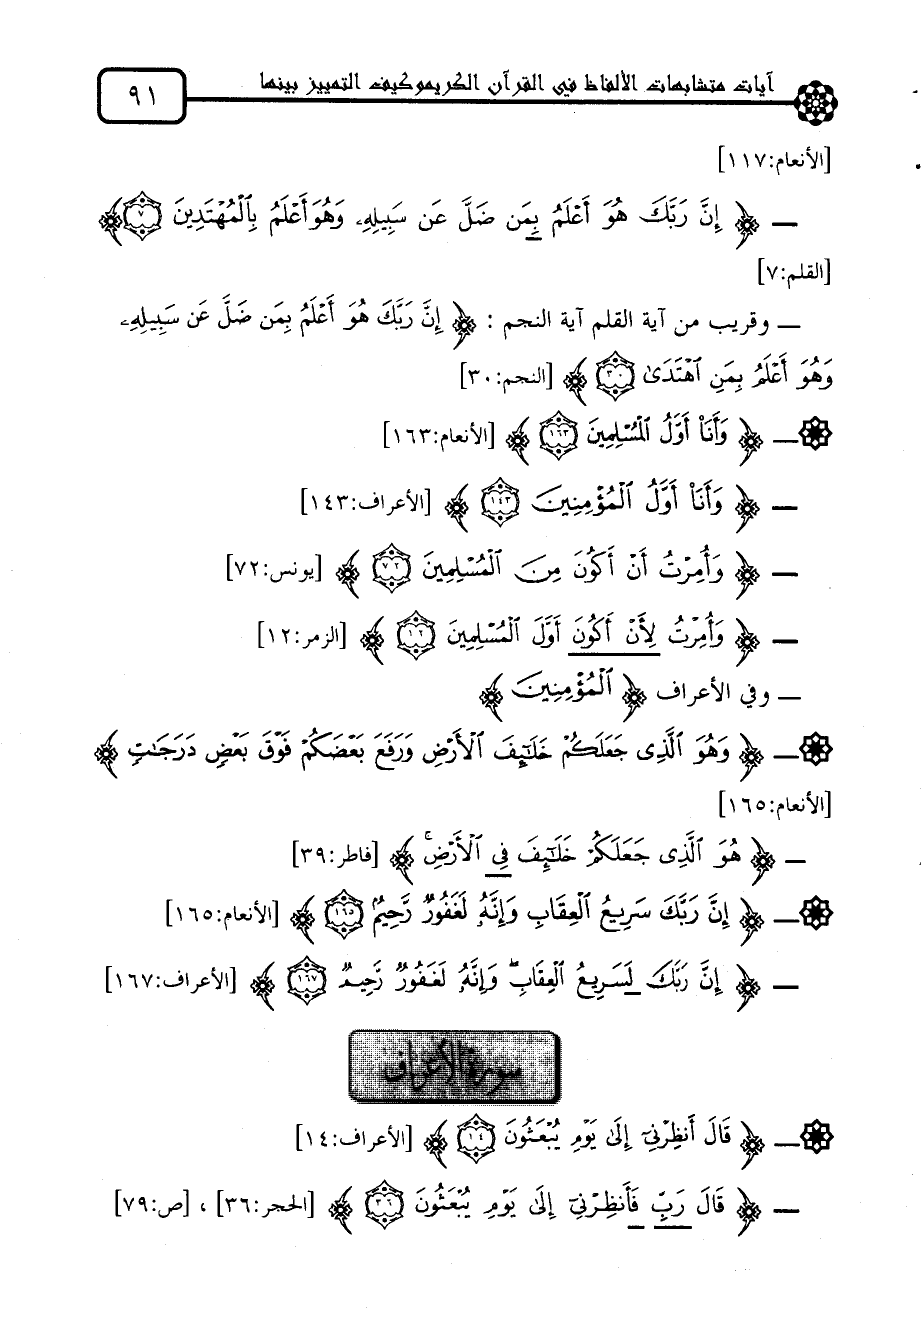 آيات متشابهات الألفاظ في القرآن الكريم وكيف التمييز بينها ٩١
[الأنعام:١١٧]
ـ ﴿ إِنَّ رَبَّكَ هُوَ أَعْلَمُ بِمَن ضَلَّ عَن سَبِيلِهِۦ وَهُوَ أَعْلَمُ بِٱلْمُهْتَدِينَ ٧ ﴾
[القلم:٧]
ـ وقريب من آية القلم آية النجم : ﴿ إِنَّ رَبَّكَ هُوَ أَعْلَمُ بِمَن ضَلَّ عَن سَبِيلِهِۦ
وَهُوَ أَعْلَمُ بِمَنِ ٱهْتَدَىٰ ٣٠ ﴾ [النجم:٣٠]
ـ ﴿ وَأَنَا۠ أَوَّلُ ٱلْمُسْلِمِينَ ١٦٣ ﴾ [الأنعام:١٦٣]
ـ ﴿ وَأَنَا۠ أَوَّلُ ٱلْمُؤْمِنِينَ ١٤٣ ﴾ [الأعراف:١٤٣]
ـ ﴿ وَأُمِرْتُ أَنْ أَكُونَ مِنَ ٱلْمُسْلِمِينَ ٧٢ ﴾ [يونس:٧٢]
ـ ﴿ وَأُمِرْتُ لِأَنْ أَكُونَ أَوَّلَ ٱلْمُسْلِمِينَ ١٢ ﴾ [الزمر:١٢]
ـ وفي الأعراف ﴿ ٱلْمُؤْمِنِينَ ﴾
ـ ﴿ وَهُوَ ٱلَّذِى جَعَلَكُمْ خَلَـٰٓئِفَ ٱلْأَرْضِ وَرَفَعَ بَعْضَكُمْ فَوْقَ بَعْضٍ دَرَجَـٰتٍ ﴾
[الأنعام:١٦٥]
ـ ﴿ هُوَ ٱلَّذِى جَعَلَكُمْ خَلَـٰٓئِفَ فِى ٱلْأَرْضِ ۚ ﴾ [فاطر:٣٩]
ـ ﴿ إِنَّ رَبَّكَ سَرِيعُ ٱلْعِقَابِ وَإِنَّهُۥ لَغَفُورٌ رَّحِيمٌۢ ١٦٥ ﴾ [الأنعام:١٦٥]
ـ ﴿ إِنَّ رَبَّكَ لَسَرِيعُ ٱلْعِقَابِ ۖ وَإِنَّهُۥ لَغَفُورٌ رَّحِيمٌ ١٦٧ ﴾ [الأعراف:١٦٧]
سورة الأعراف
ـ ﴿ قَالَ أَنظِرْنِىٓ إِلَىٰ يَوْمِ يُبْعَثُونَ ١٤ ﴾ [الأعراف:١٤]
ـ ﴿ قَالَ رَبِّ فَأَنظِرْنِىٓ إِلَىٰ يَوْمِ يُبْعَثُونَ ٣٦ ﴾ [الحجر:٣٦] ، [ص:٧٩]